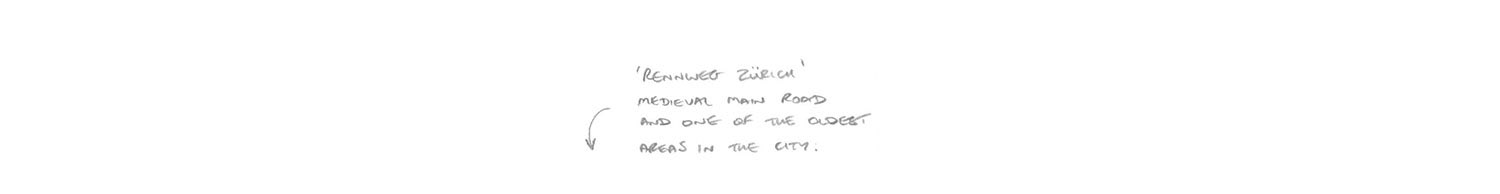 'RENNWEG ZÜRICH'
MEDIEVAL MAIN ROAD
AND ONE OF THE OLDEST
AREAS IN THE CITY.